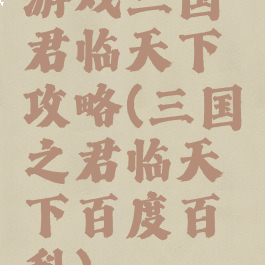 游戏三国
君临天下
攻略(三国
之君临天
下百度百
科)